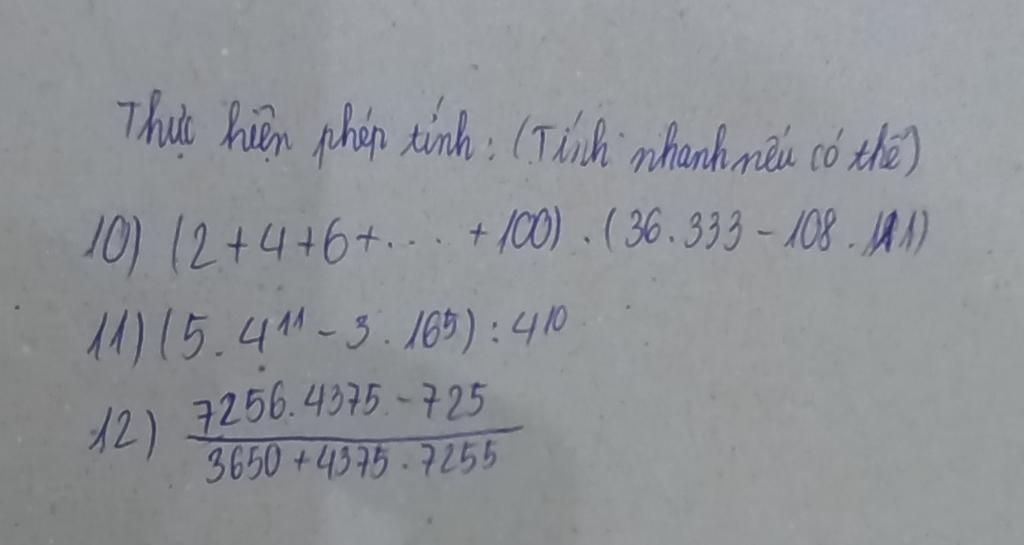 Thực hiện phép tính: (Tính nhanh nếu có thể)
10) (2+4+6+.... +100) . (36.333 - 108 . 111)
11) (5. 4¹¹ - 3 . 16⁵) : 4¹⁰
12) 7256.4375 - 725
3650 + 4375 . 7255